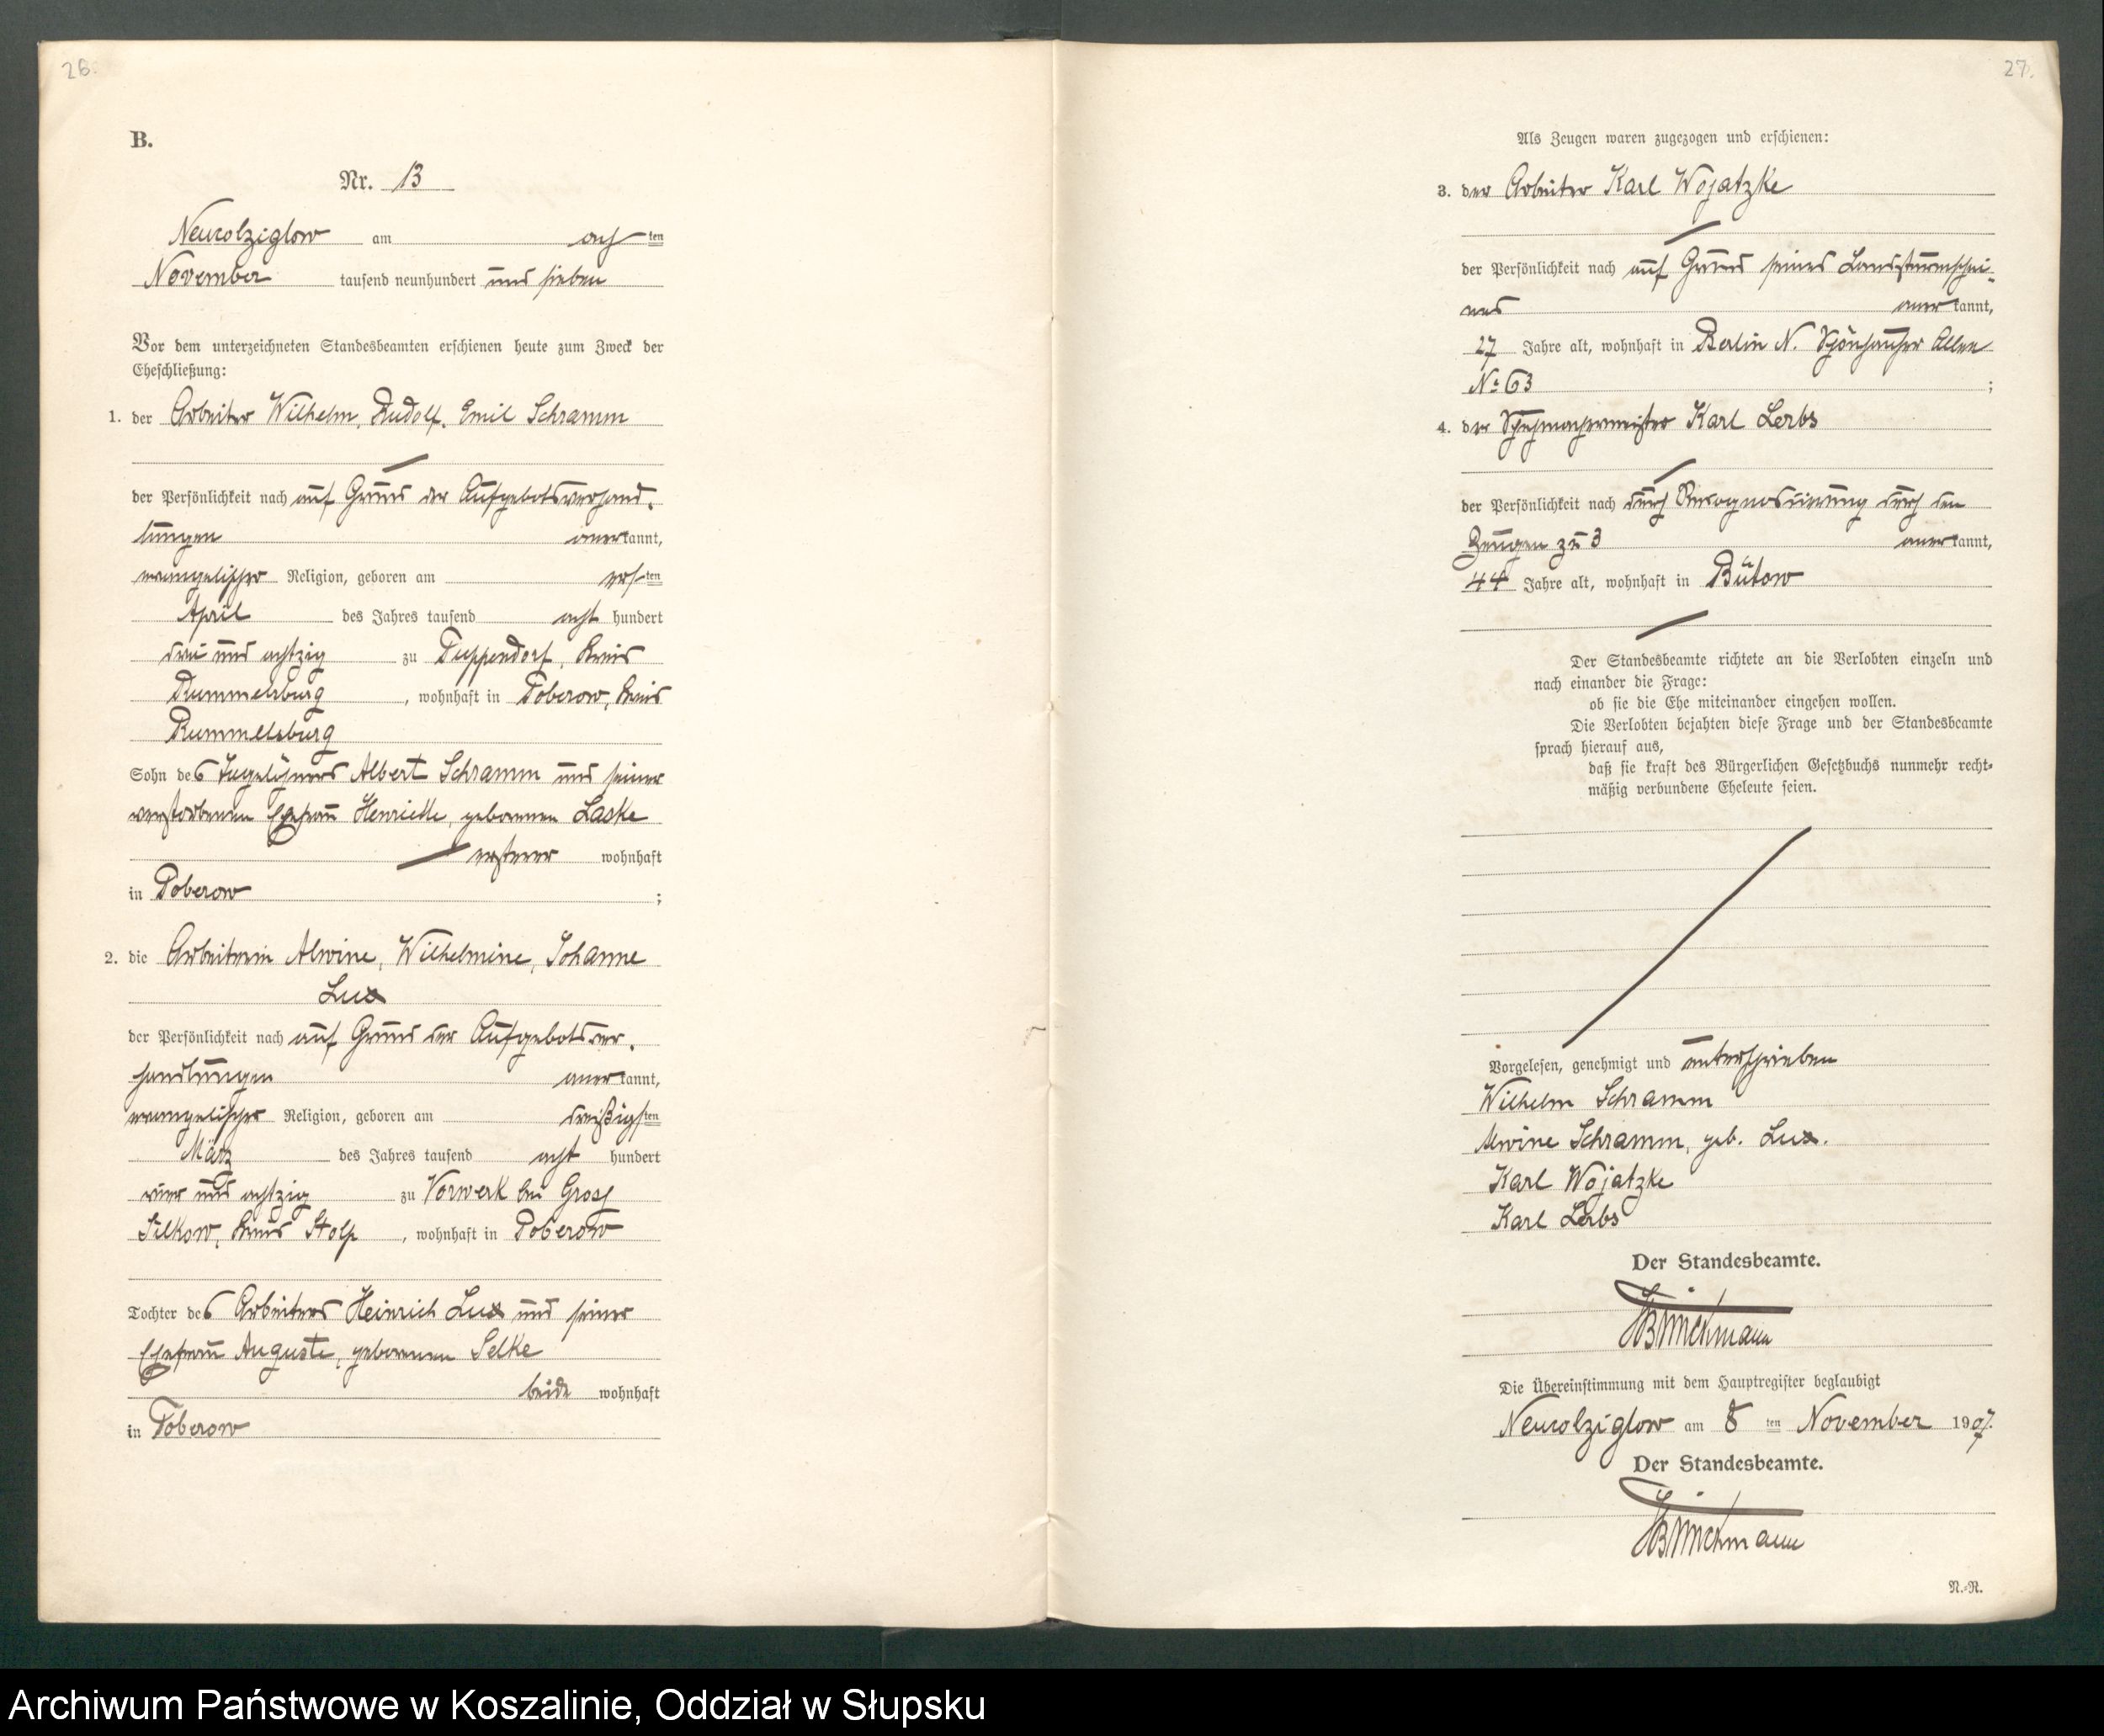 26.
B.
Nr. 13
Neukolziglow am achten
November tausend neunhundert und sieben
Vor dem unterzeichneten Standesbeamten erschienen heute zum Zweck der
Eheschließung:
1. der Arbeiter Wilhelm, Rudolf, Emil Schramm
der Persönlichkeit nach auf Grund der Aufgebotsverhand-
lungen anerkannt,
evangelischer Religion, geboren am ersten
April des Jahres tausend acht hundert
drei und achtzig zu Puppendorf, Kreis
Rummelsburg, wohnhaft in Poberow, Kreis
Rummelsburg
Sohn des Tagelöhners Albert Schramm und seiner
verstorbenen Ehefrau Henriette, geborenen Laske
ersterer wohnhaft
in Poberow;
2. die Arbeiterin Alwine, Wilhelmine, Johanne
Lux
der Persönlichkeit nach auf Grund der Aufgebotsver-
handlungen anerkannt,
evangelischer Religion, geboren am dreißigsten
März des Jahres tausend acht hundert
vier und achtzig zu Vorwerk bei Gross
Silkow, Kreis Stolp, wohnhaft in Poberow
Tochter des Arbeiters Heinrich Lux und seiner
Ehefrau Auguste, geborenen Selke
beide wohnhaft
in Poberow
27.
Als Zeugen waren zugezogen und erschienen:
3. der Arbeiter Karl Wojatzke
der Persönlichkeit nach auf Grund seines Landsturmschei-
nes anerkannt,
27 Jahre alt, wohnhaft in Berlin N. Schönhauser Allee
No 63;
4. der Schuhmachermeister Karl Lerbs
der Persönlichkeit nach durch Rekognoszierung durch den
Zeugen zu 3 anerkannt,
44 Jahre alt, wohnhaft in Bütow
Der Standesbeamte richtete an die Verlobten einzeln und
nach einander die Frage:
ob sie die Ehe miteinander eingehen wollen.
Die Verlobten bejahten diese Frage und der Standesbeamte
sprach hierauf aus,
daß sie kraft des Bürgerlichen Gesetzbuchs nunmehr recht-
mäßig verbundene Eheleute seien.
Vorgelesen, genehmigt und unterschrieben
Wilhelm Schramm
Alwine Schramm, geb. Lux.
Karl Wojatzke
Karl Lerbs
Der Standesbeamte.
Brinckmann
Die Übereinstimmung mit dem Hauptregister beglaubigt
Neukolziglow am 8 ten November 1907.
Der Standesbeamte.
Brinckmann
N.-R.
Archiwum Państwowe w Koszalinie, Oddział w Słupsku